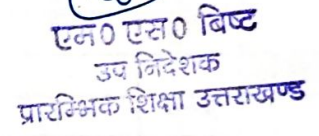 एम0 एस0 बिष्ट
उप निदेशक
प्रारम्भिक शिक्षा उत्तराखण्ड